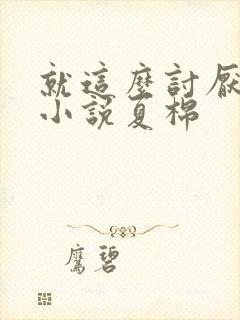 就這麼討厭
小說夏棉
鷹碧